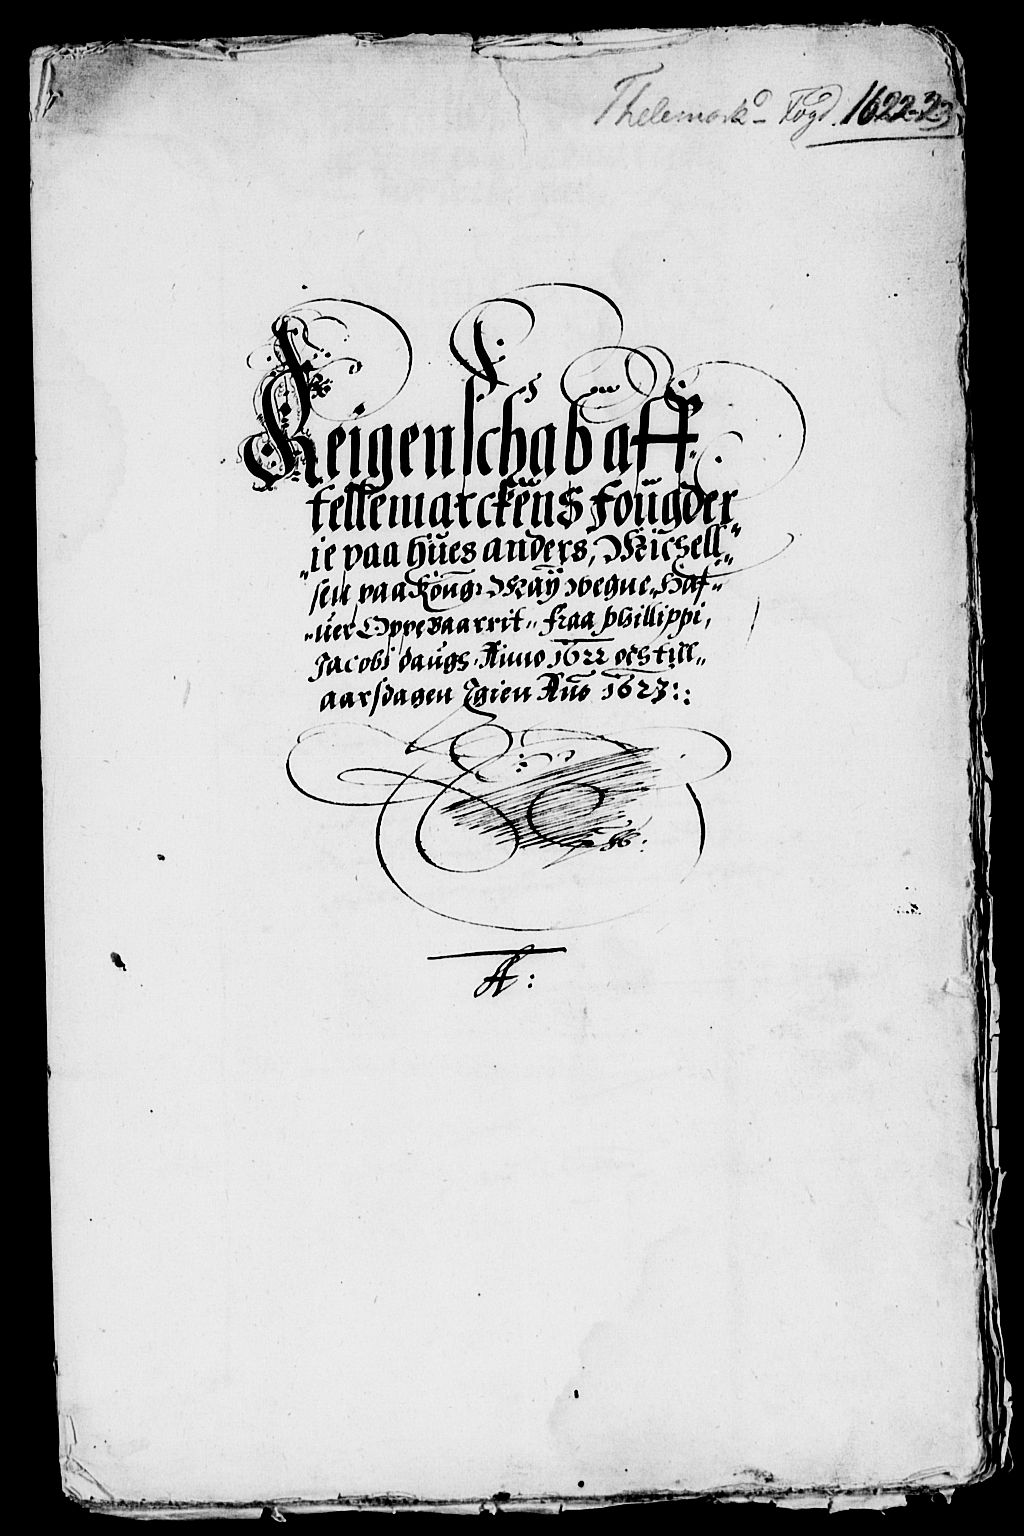 Thelemark. Fogd. 1622-23
Reigenschab aff
tellemarckens fougder
"ie paa hues anders, Michell"
sen paa Kong: May: wegne, Haf"
"uer Oppebaarrit" fraa phillippi,
Jacobi daugs Anno 1622 och till"
aarsdagen Igien Ano 1623:
A: